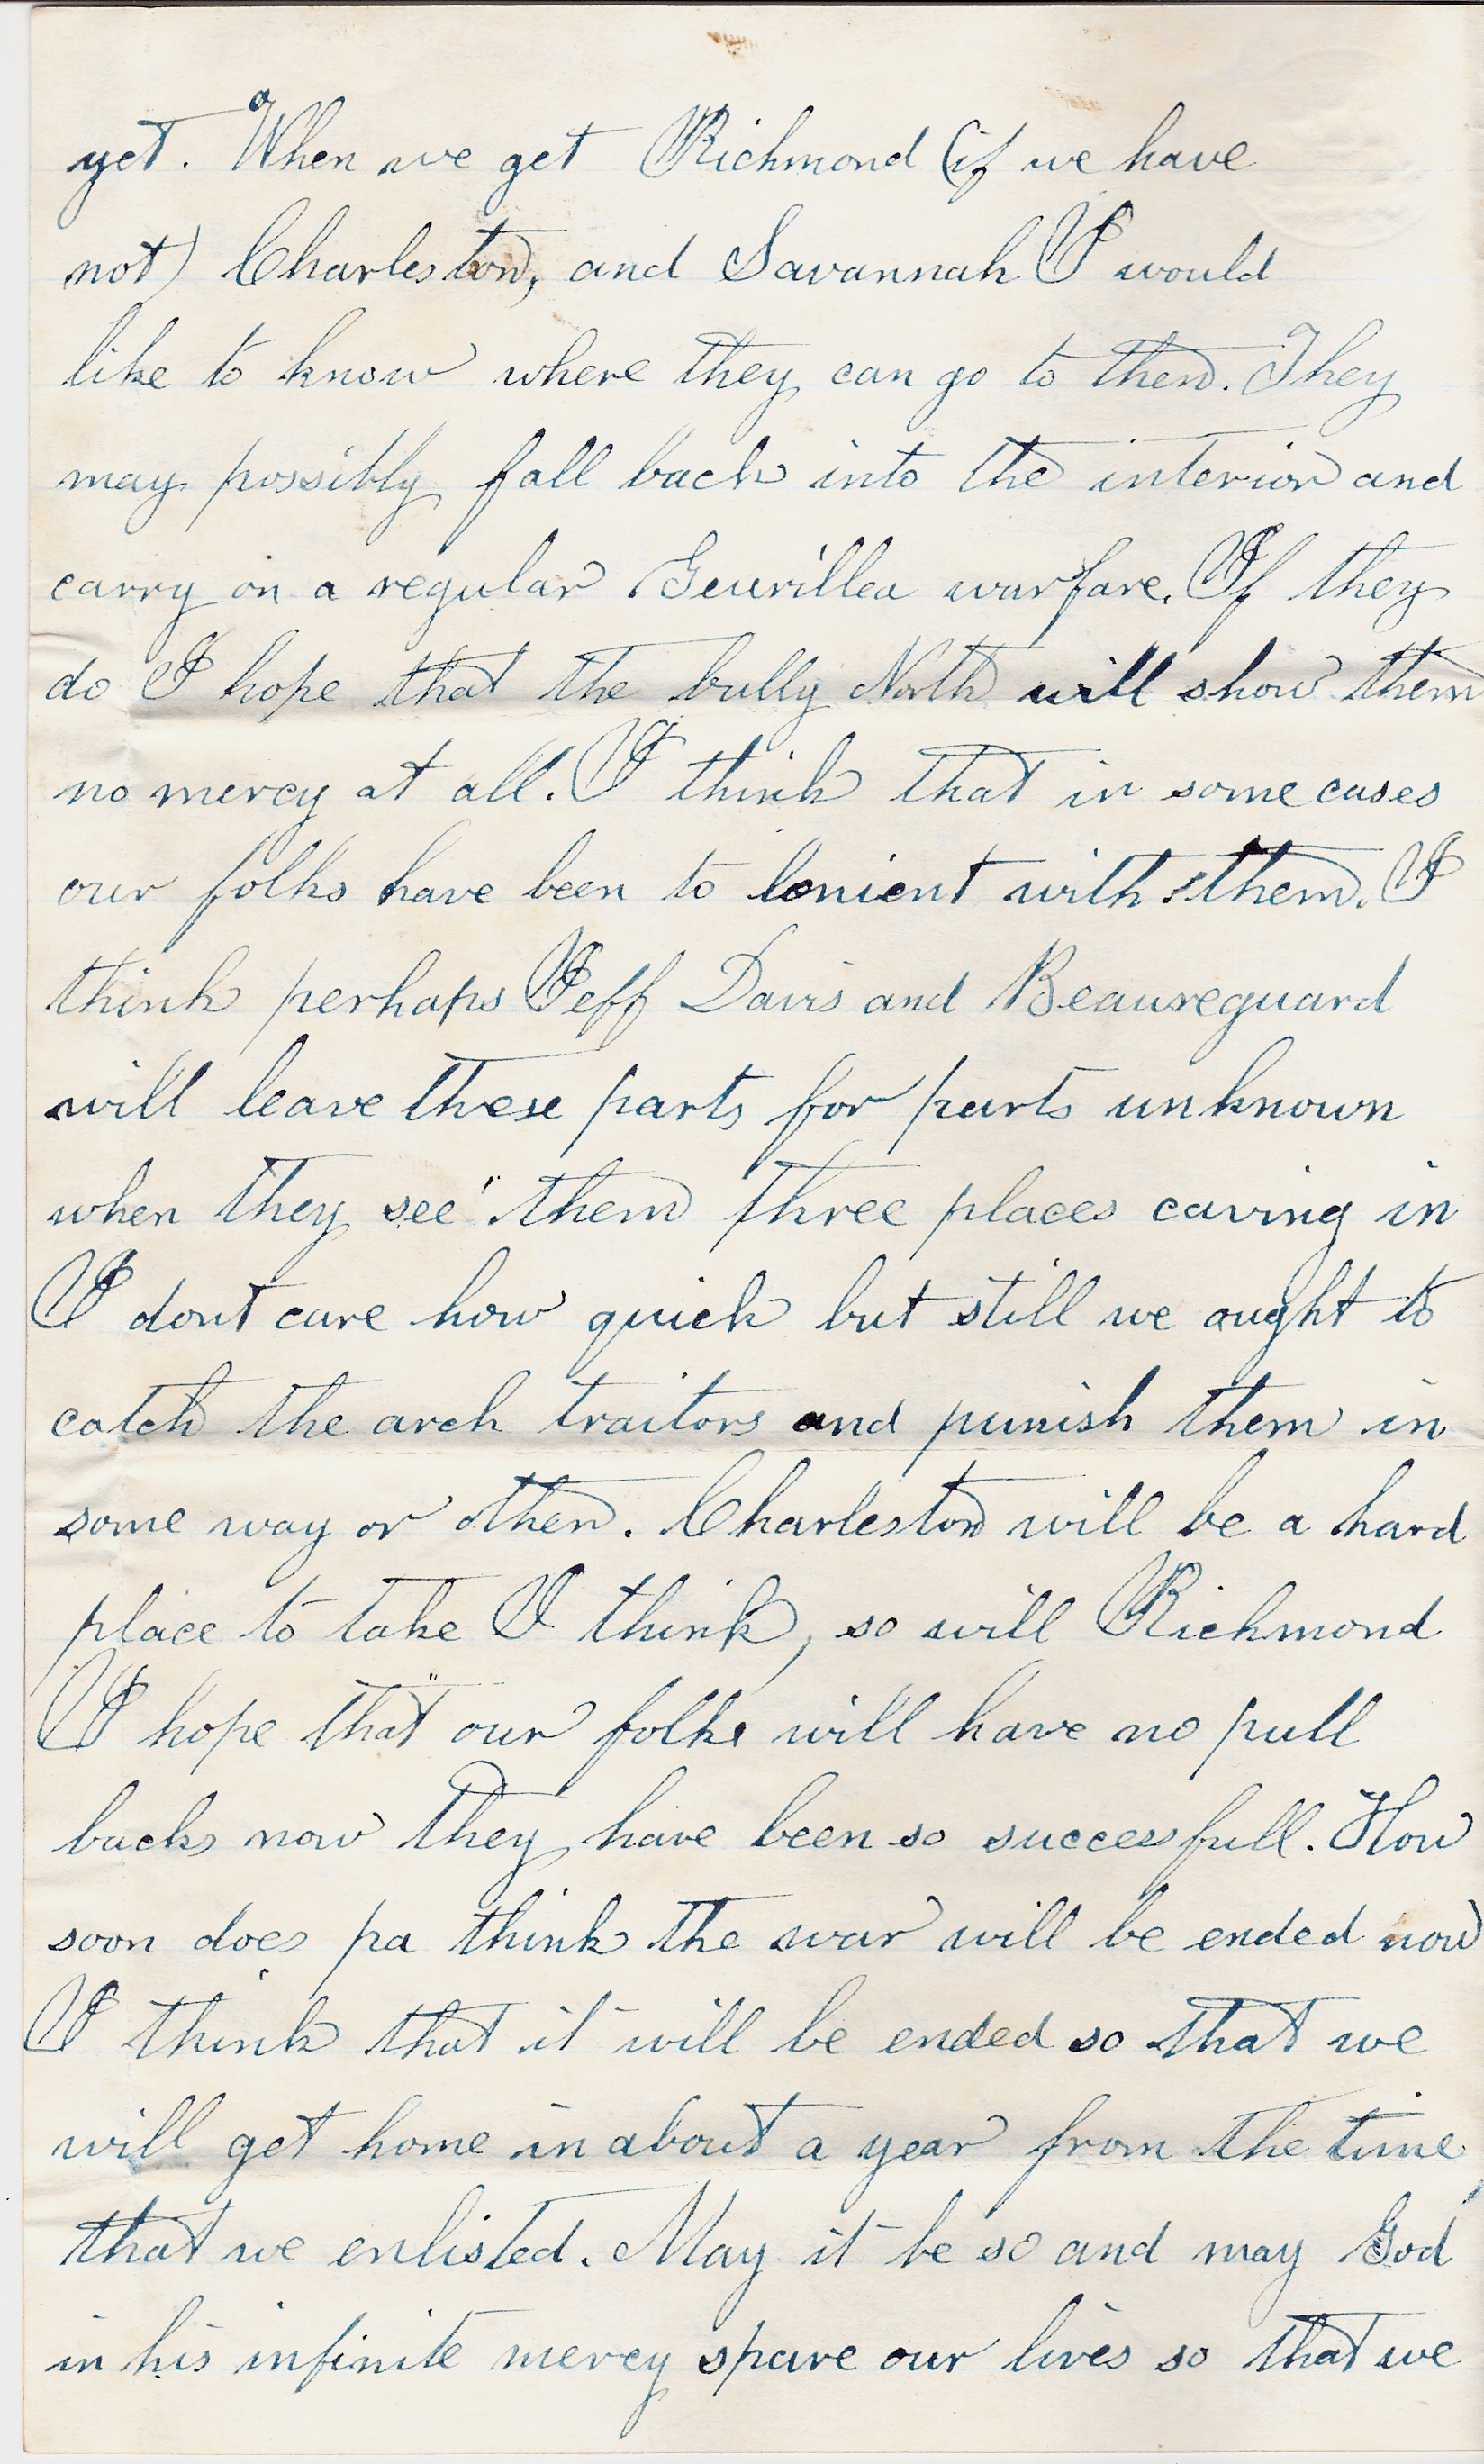 yet. When we get Richmond (if we have
not) Charleston, and Savannah I would
like to know where they can go to then. They
may possibly fall back into the interior and
carry on a regular Geurillea warfare. If they
do I hope that the bully North will show them
no mercy at all. I think that in some cases
our folks have been to lenient with them. I
think perhaps Jeff Davis and Beaureguard
will leave these parts for parts unknown
when they see them three places caving in
I dont care how quick but still we ought to
catch the arch traitors and punish them in
some way or other. Charleston will be a hard
place to take I think, so will Richmond
I hope that our folks will have no pull
backs now they have been so succesfull. How
soon does pa think the war will be ended now
I think that it will be ended so that we
will get home in about a year from the time
that we enlisted. May it be so and may God
in his infinite mercy spare our lives so that we